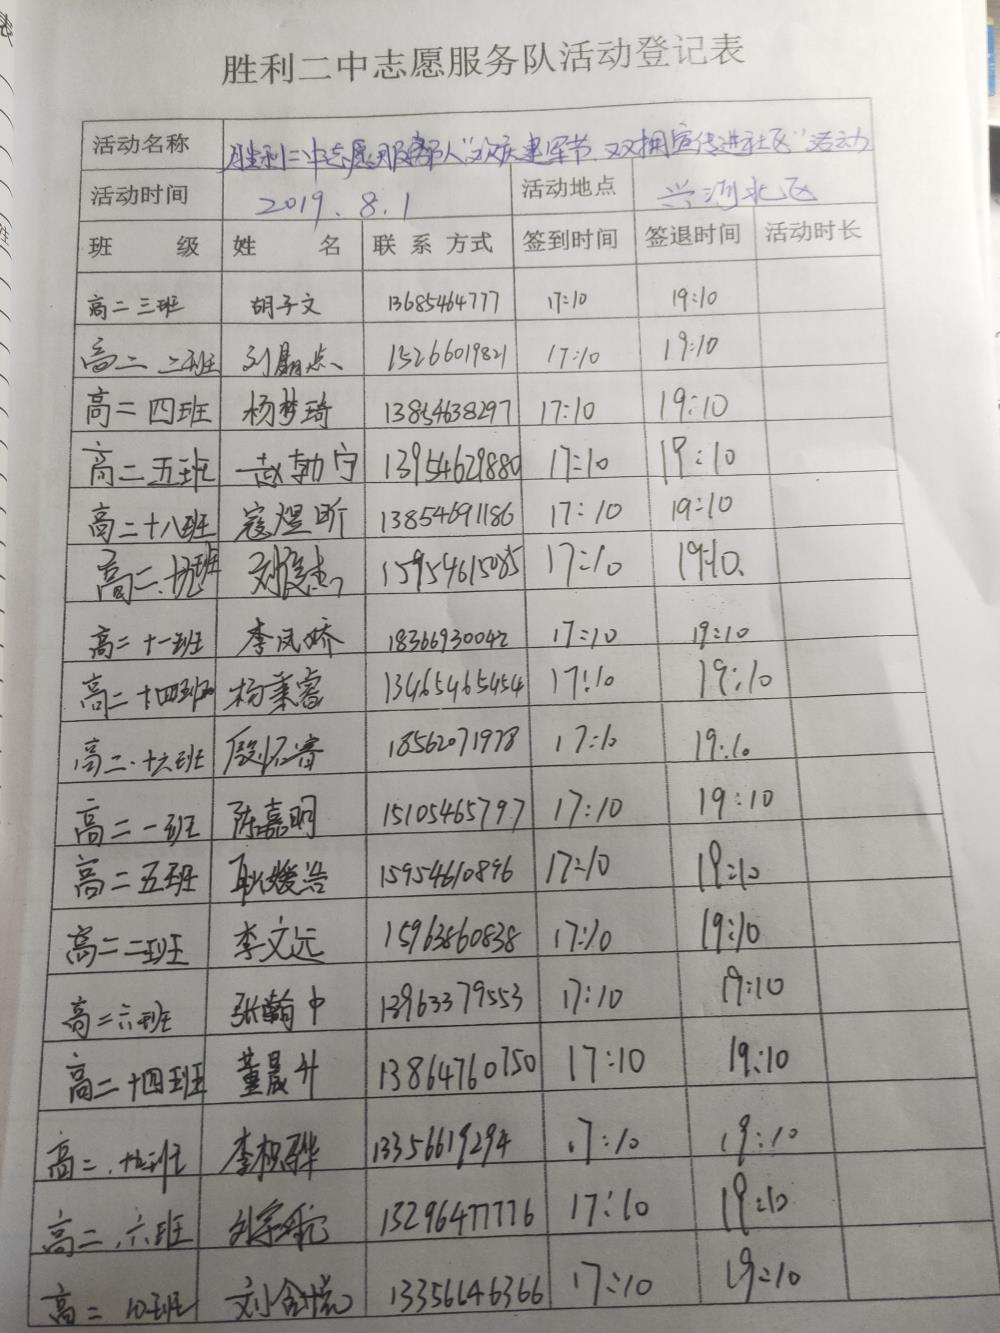 胜利二中志愿服务队活动登记表
活动名称 胜利二中志愿服务队"欢庆建军节、双拥宣传进社区"活动
活动时间 2019.8.1 活动地点 兴河北区
班 级 姓 名 联 系 方式 签到时间 签退时间 活动时长
高二三班 胡子文 13685464777 17:10 19:10
高二二班 刘 15266019821 17:10 19:10
高二四班 杨梦琦 13854638297 17:10 19:10
高二五班 赵勃宁 13954629880 17:10 19:10
高二十八班 寇煜昕 13854691186 17:10 19:10
高二 刘俊杰 15954615085 17:10 19:10
高二十一班 李凤娇 18366930042 17:10 19:10
高二十四班 杨秉睿 13465465454 17:10 19:10
高二.十六班 殷 18562071978 17:10 19:10
高二一班 陈嘉明 15105465797 17:10 19:10
高二五班 耿媛浩 15954610896 17:10 19:10
高二二班 李文远 15963860838 17:10 19:10
高二六班 张瀚中 13963379553 17:10 19:10
高二十四班 董晟升 13864760750 17:10 19:10
高二. 李 13356619294 17:10 19:10
高二.六班 刘宗 13296477776 17:10 19:10
高二 刘 悦 13356646366 17:10 19:10